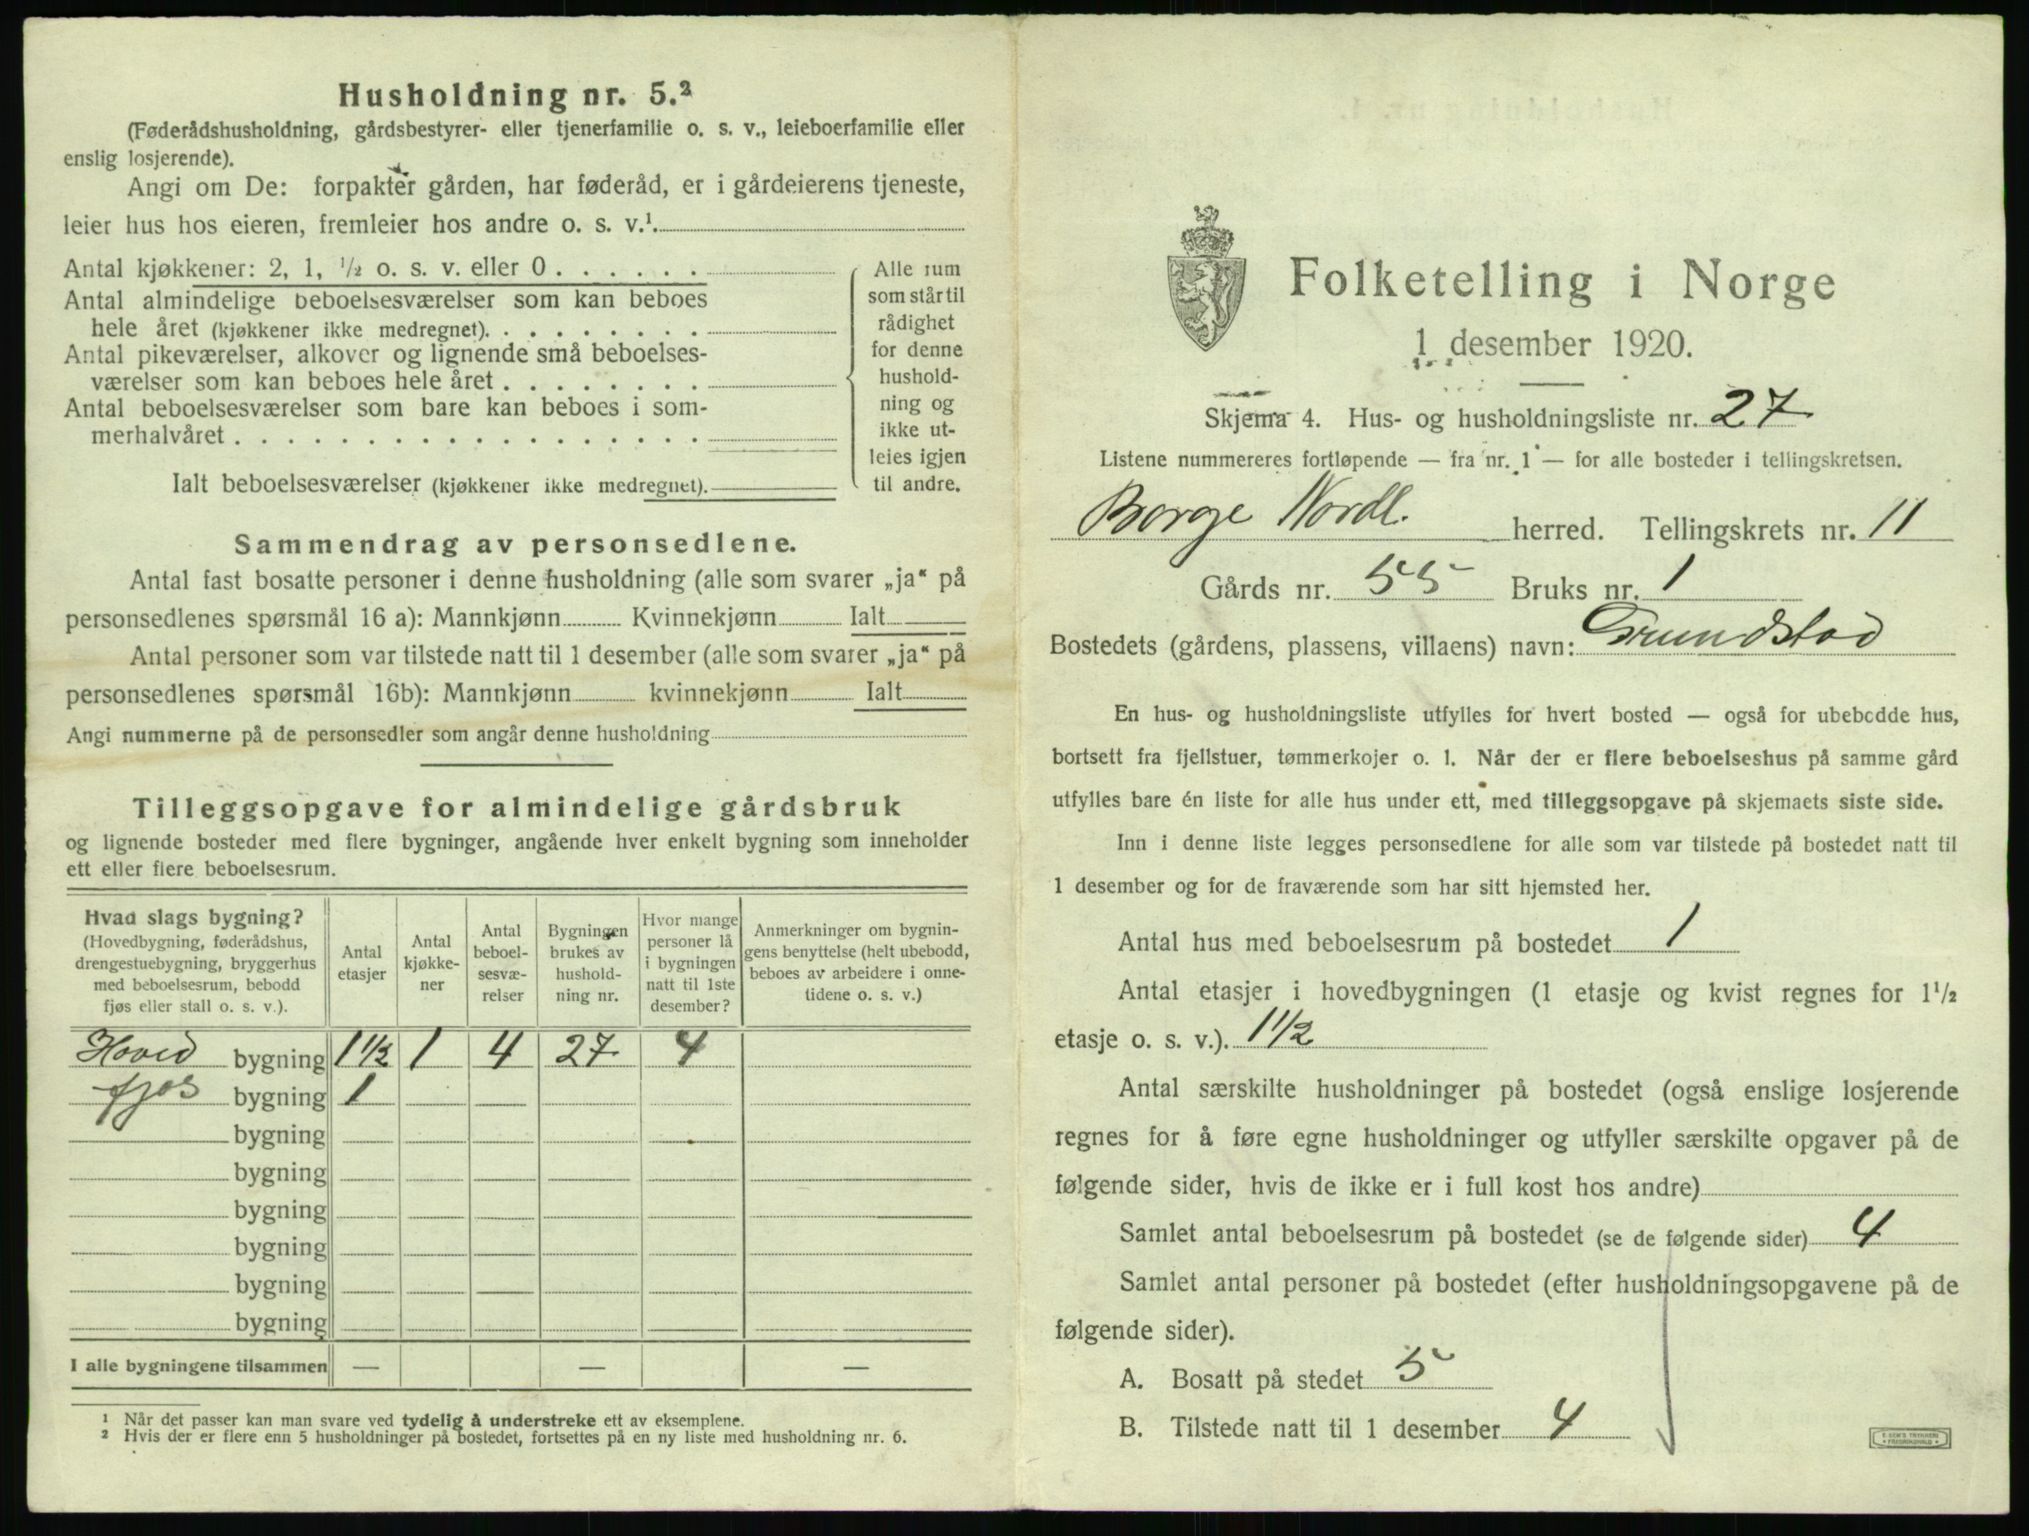 Husholdning nr. 5.²
(Føderådshusholdning, gårdsbestyrer- eller tjenerfamilie o. s. v., leieboerfamilie eller
enslig losjerende).
Angi om De: forpakter gården, har føderåd, er i gårdeierens tjeneste,
leier hus hos eieren, fremleier hos andre o. s. v.¹.
Antal kjøkkener: 2, 1, ½ o. s. v. eller 0 . . . . . .
Antal almindelige beboelsesværelser som kan beboes
hele året (kjøkkener ikke medregnet). . . . . . . . .
Antal pikeværelser, alkover og lignende små beboelses-
værelser som kan beboes hele året . . . . . . . .
Antal beboelsesværelser som bare kan beboes i som-
merhalvåret . . . . . . . . . . . . . . . . .
Ialt beboelsesværelser (kjøkkener ikke medregnet).
Alle rum
som står til
rådighet
for denne
hushold-
ning og
ikke ut-
leies igjen
til andre.
Sammendrag av personsedlene.
Antal fast bosatte personer i denne husholdning (alle som svarer „ja“ på
personsedlenes spørsmål 16 a): Mannkjønn Kvinnekjønn Ialt
Antal personer som var tilstede natt til 1 desember (alle som svarer „ja“ på
personsedlenes spørsmål 16b): Mannkjønn kvinnekjønn Ialt
Angi nummerne på de personsedler som angår denne husholdning
Tilleggsopgave for almindelige gårdsbruk
og lignende bosteder med flere bygninger, angående hver enkelt bygning som inneholder
ett eller flere beboelsesrum.
Hvad slags bygning?
(Hovedbygning, føderådshus,
drengestuebygning, bryggerhus
med beboelsesrum, bebodd
fjøs eller stall o. s. v.).
Antal
etasjer
Antal
kjøkke-
ner
Antal
beboel-
sesvæ-
relser
Bygningen
brukes av
hushold-
ning nr.
Hvor mange
personer lå
i bygningen
natt til 1ste
desember?
Anmerkninger om bygnin-
gens benyttelse (helt ubebodd,
beboes av arbeidere i onne-
tidene o. s. v.)
Hoved bygning 1 1/2 1 4 27 4
fjos bygning 1
bygning
bygning
bygning
bygning
bygning
bygning
I alle bygningene tilsammen — — —
¹ Når det passer kan man svare ved tydelig å understreke ett av eksemplene.
² Hvis der er flere enn 5 husholdninger på bostedet, fortsettes på en ny liste med husholdning nr. 6.
Folketelling i Norge
1 desember 1920.
Skjema 4. Hus- og husholdningsliste nr. 27
Listene nummereres fortløpende — fra nr. 1 — for alle bosteder i tellingskretsen.
Borge Nordl. herred. Tellingskrets nr. 11
Gårds nr. 55 Bruks nr. 1
Bostedets (gårdens, plassens, villaens) navn: Grundstad
En hus- og husholdningsliste utfylles for hvert bosted — også for ubebodde hus,
bortsett fra fjellstuer, tømmerkojer o. l. Når der er flere beboelseshus på samme gård
utfylles bare én liste for alle hus under ett, med tilleggsopgave på skjemaets siste side.
Inn i denne liste legges personsedlene for alle som var tilstede på bostedet natt til
1 desember og for de fraværende som har sitt hjemsted her.
Antal hus med beboelsesrum på bostedet 1
Antal etasjer i hovedbygningen (1 etasje og kvist regnes for 1½
etasje o. s. v.). 1 1/2
Antal særskilte husholdninger på bostedet (også enslige losjerende
regnes for å føre egne husholdninger og utfyller særskilte opgaver på de
følgende sider, hvis de ikke er i full kost hos andre)
Samlet antal beboelsesrum på bostedet (se de følgende sider) 4
Samlet antal personer på bostedet (efter husholdningsopgavene på de
følgende sider).
A. Bosatt på stedet 5
B. Tilstede natt til 1 desember 4